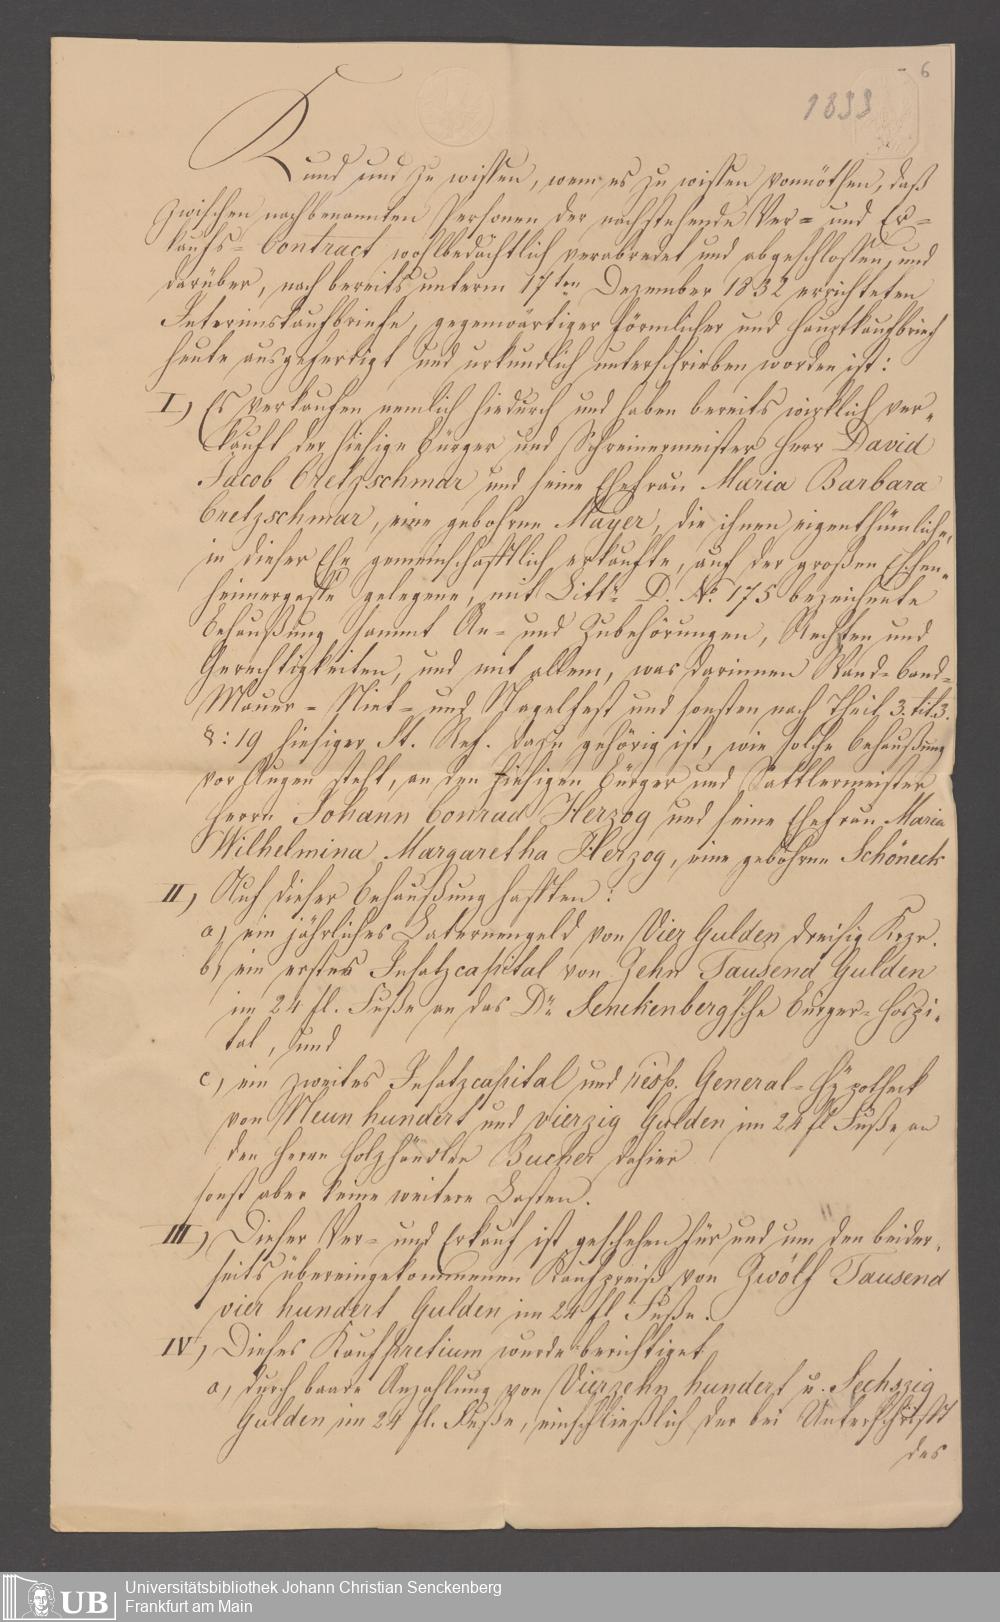 6
1833
Kund und zu wissen, wem es zu wissen vonnöthen, daß
zwischen nachbenannten Personen der nachstehende Ver= und Er=
kaufs= Contract wohlbedächtlich verabredet und abgeschlossen, und
darüber, nach bereits unterm 17ten Dezember 1832 errichteten
Interimskaufbriefe, gegenwärtiger förmlicher und Hauptkaufbrief
heute ausgefertigt und urkundlich unterschrieben worden ist:
I, Es verkaufen nemlich hiedurch und haben bereits wirklich ver=
kauft der hiesige Bürger und Schreinermeister Herr David
Jacob Cretzschmar und seine Ehefrau Maria Barbara
Cretzschmar, eine gebohrne Mayer, die ihnen eigenthümliche,
in dieser Ehe gemeinschafftlich erkaufte, auf der großen Eschen=
heimergasse gelegene, mit Littr. D. No. 175 bezeichnete
Behaußung sammt An= und Zubehörungen, Rechten und
Gerechtigkeiten, und mit allem, was darinnen Wand= band=
Mauer= Niet= und Nagelfest und sonsten nach Theil 3. tit. 3.
§: 19 hiesiger St. Ref. dazu gehörig ist, wie solche Behaußung
vor Augen steht, an den hiesigen Bürger und Sattlermeister
Herrn Johann Conrad Herzog und seine Ehefrau Maria
Wilhelmina Margaretha Herzog, eine gebohrne Schöneck
II, Auf dieser Behaußung hafften:
a, ein jährliches Laternengeld von Vier Gulden dreißig Krzr.
b, ein erstes Insatzcapital von Zehn Tausend Gulden
im 24 fl. Fuße an das Dr. Senckenberg'sche Bürger=Hospi=
tal, und
c, ein zweites Insatzcapital und resp. General=Hypotheck
von Neun hundert und vierzig Gulden im 24 fl Fuße an
den Herrn Holzhändler Bucher dahier
sonst aber keine weitere Lasten.
III, Dieser Ver= und Erkauf ist geschehen für und um den beider=
seits übereingekommenen Kaufpreiß von Zwölf Tausend
vier hundert Gulden im 24 fl Fuße.
IV, Dieses Kaufpretium wurde berichtiget
a, durch baare Anzahlung von Vierzehn hundert u. Sechszig
Gulden im 24 fl. Fuße, einschließlich der bei Unterschrifft
des
UB
Universitätsbibliothek Johann Christian Senckenberg
Frankfurt am Main